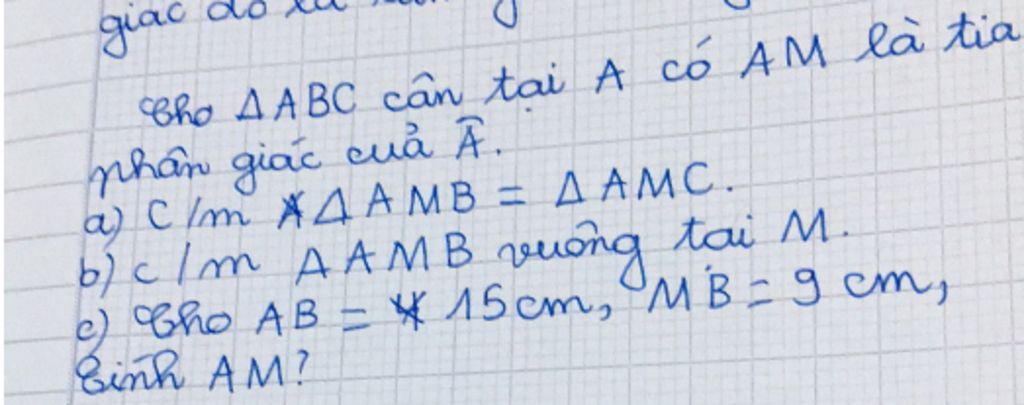 giác
Cho ΔABC cân tại A có AM là tia
phân giác của Â.
a) C/m ΔAMB = ΔAMC.
b) c/m ΔAMB vuông tại M.
c) Cho AB = 15cm, MB = 9 cm,
Tính AM?